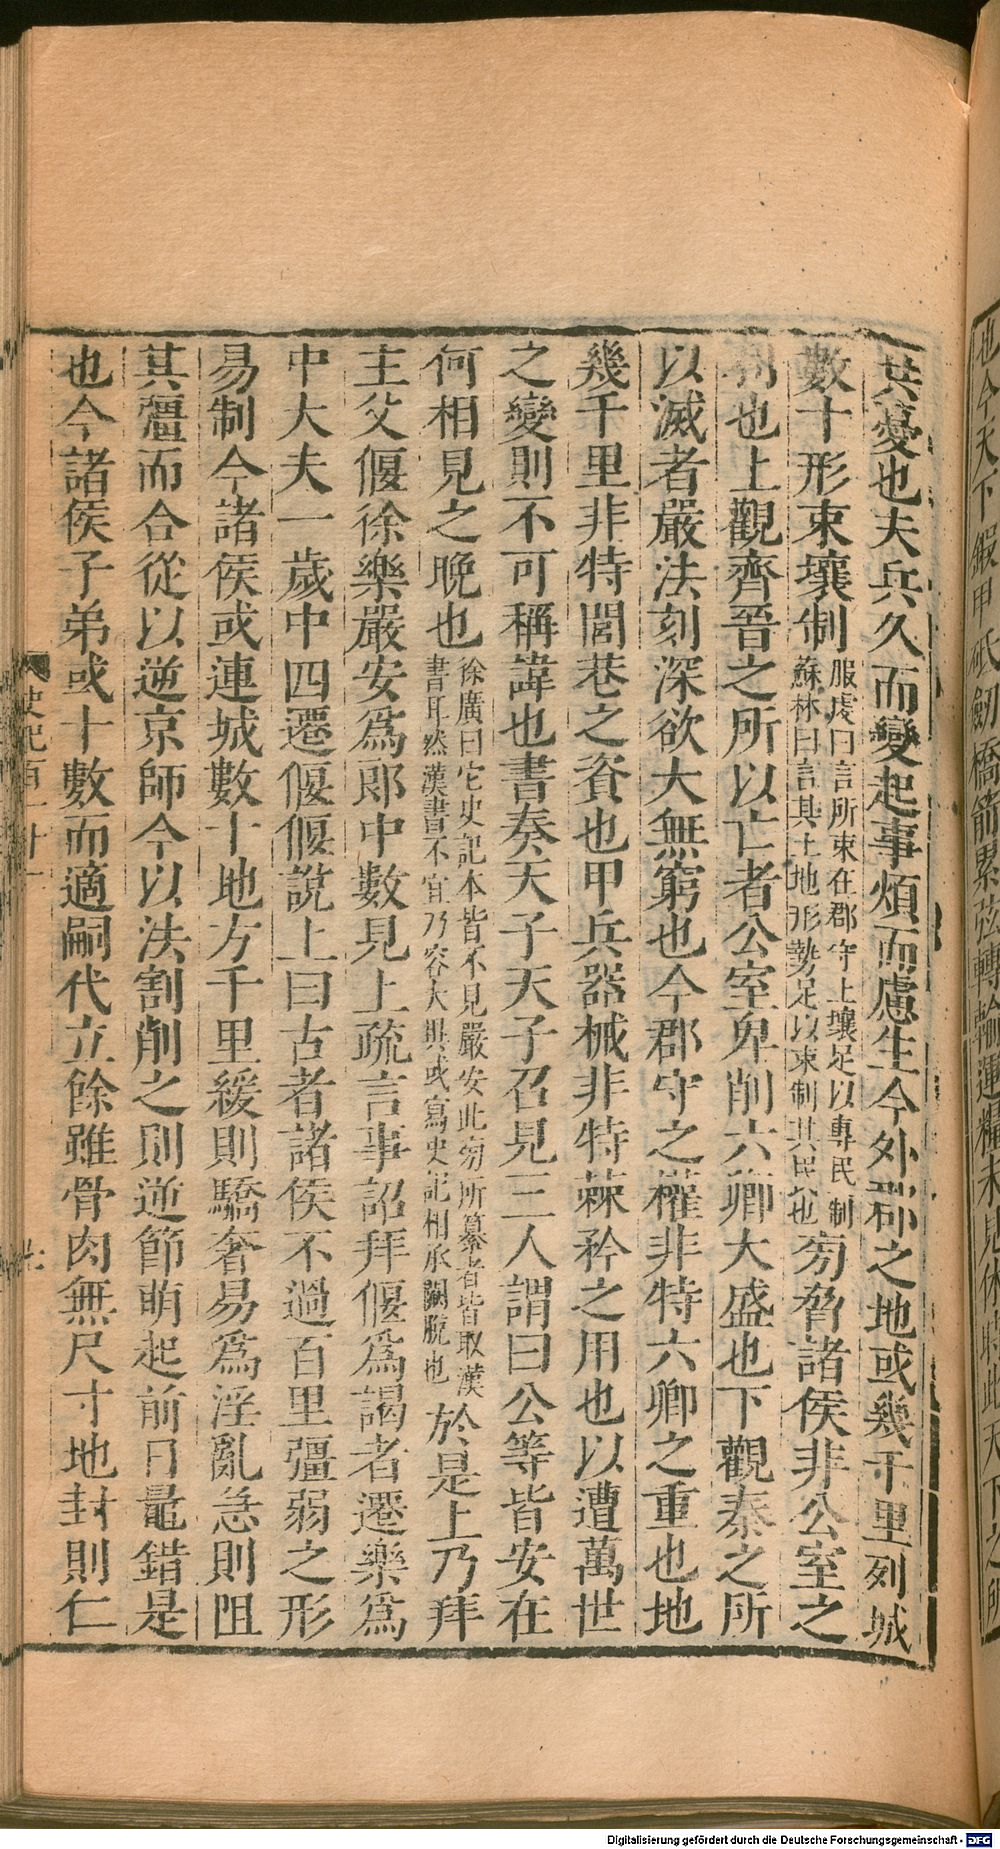 共憂也夫兵久而變起事煩而慮生今外郡之地或幾千里列城
數十形束壤制服虔曰言所束在郡守土壤足以專民制蘇林曰言其土地形勢足以束制其民也旁脅諸侯非公室之
利也上觀齊晉之所以亡者公室卑削六卿大盛也下觀秦之所
以滅者嚴法刻深欲大無窮也今郡守之權非特六卿之重也地
幾千里非特閭巷之資也甲兵器械非特棘矜之用也以遭萬世
之變則不可稱諱也書奏天子天子召見三人謂曰公等皆安在
何相見之晚也徐廣曰它史記本皆不見嚴安此旁所纂者皆取漢書耳然漢書不宜乃容大異或寫史記相承闕脫也於是上乃拜
主父偃徐樂嚴安爲郎中數見上疏言事詔拜偃爲謁者遷樂爲
中大夫一歲中四遷偃偃說上曰古者諸侯不過百里彊弱之形
易制今諸侯或連城數十地方千里緩則驕奢易爲淫亂急則阻
其彊而合從以逆京師今以法割削之則逆節萌起前日鼂錯是
也今諸侯子弟或十數而適嗣代立餘雖骨肉無尺寸地封則仁
史記百一十二
也今天下鍜甲砥劒橋箭累弦轉輸運糧未見休時此天下之所
Digitalisierung gefördert durch die Deutsche Forschungsgemeinschaft - DFG